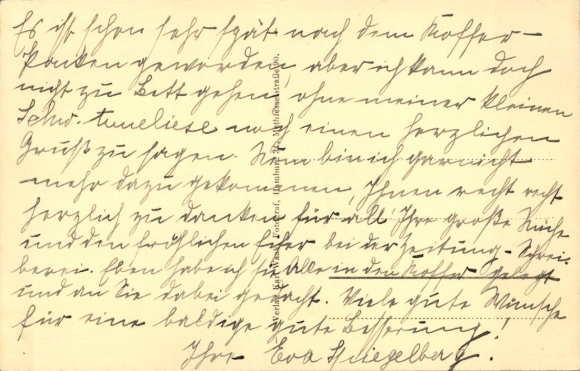 Es ist schon sehr spät nach dem Koffer-
packen geworden, aber ich kann doch
nicht zu Bett gehen, ohne meiner kleinen
Schw. Anneliese noch einen herzlichen
Gruß zu sagen. Nun bin ich garnicht
mehr dazu gekommen, Ihnen recht recht
herzlich zu danken für all' Ihre große Mühe
und den fröhlichen Eifer bei der Zeitung-Schrei-
berei. Eben habe ich sie Alle in den Koffer gelegt
und an Sie dabei gedacht. Viele gute Wünsche
für eine baldige gute Besserung!
Ihre Eva
Verlag Karl Wahl, Fotograf, Hamburg